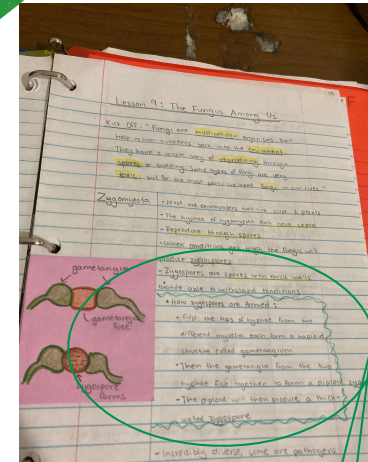 Lesson 9: The Fungus Among Us
Kick-Off: "Fungi are multicellular organisms that
help return nutrients back into the environment.
They have a unique way of reproducing through
spores or budding. Some types of fungi are very
toxic, but for the most part, we need fungi in our lives."
Zygomycota - Most are decomposers and live close to plants
- The hyphae of zygomycota
- Reproduce through spores
- When conditions get rough the fungus will
produce zygospores
- Zygospores are spores with thick walls
that are able to withstand conditions
• How zygospores are formed:
- First, the tips of hyphae from two
different mycelia each form a haploid
structure called gametangium
- Then the gametangia from the two
hyphae fuse together to form a diploid
- The diploid will then produce a thick-
walled zygospore
- Incredibly diverse, some are pathogens
gametangia
gametangia
fuse
zygospore
forms